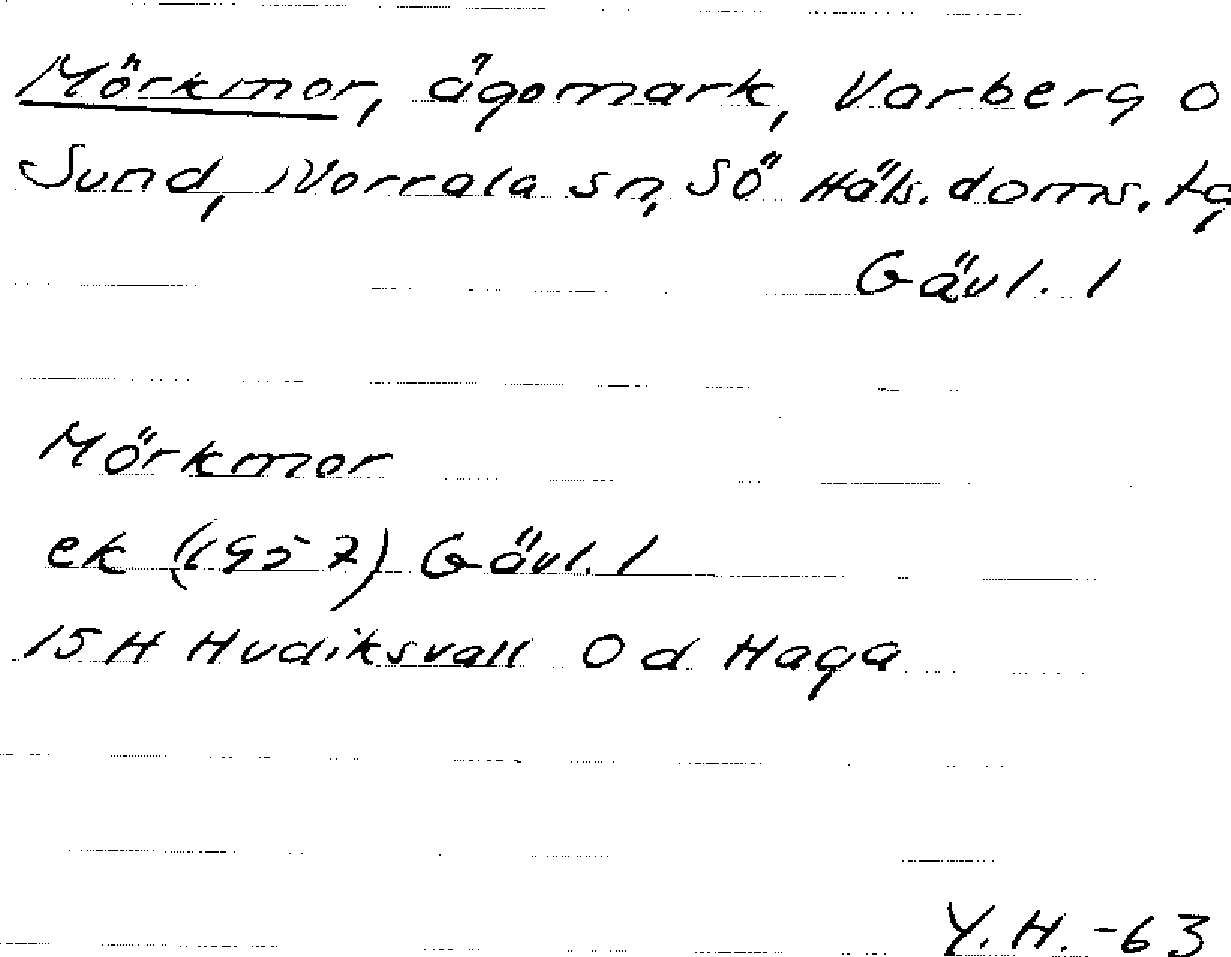 Mörkmor, ägomark, Varberg o
Sund, Norrala sn, Sö Häls. doms. tg
Gävl. l
Mörkmor
ek (1957) Gävl. l
15 H Hudiksvall 0 d Haga
Y. H. -63